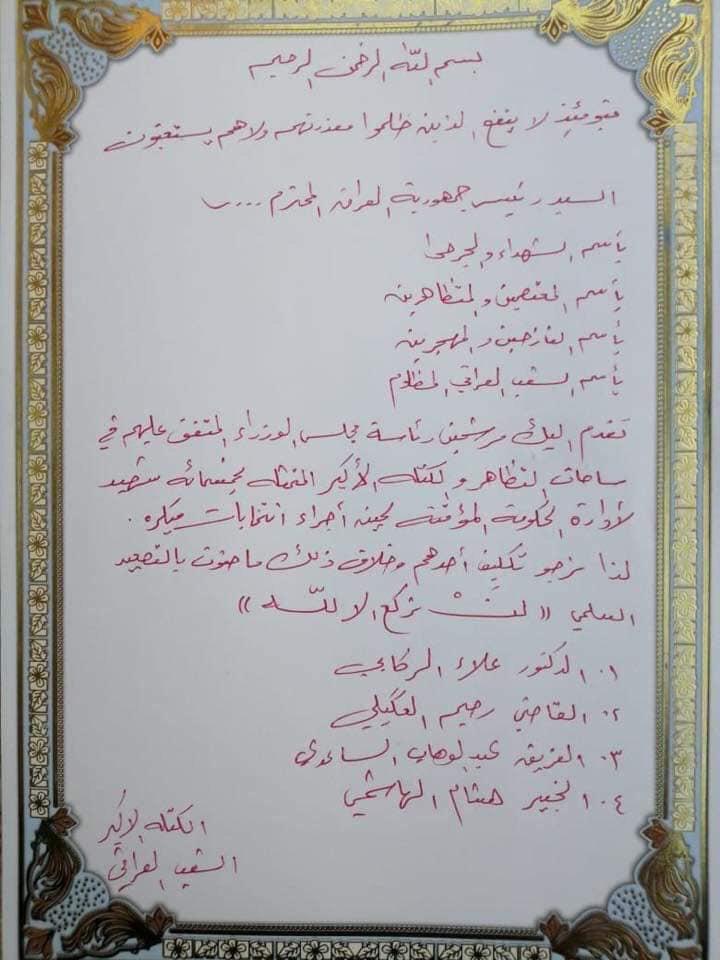 بسم الله الرحمن الرحيم
فيومئذٍ لا ينفع الذين ظلموا معذرتهم ولا هم يستعتبون
السيد رئيس جمهورية العراق المحترم ....
بأسم الشهداء والجرحى
بأسم المعتصمين والمتظاهرين
بأسم النازحين والمهجرين
بأسم الشعب العراقي المظلوم
نقدم اليك مرشحين رئاسة مجلس الوزراء المتفق عليهم في
ساحات التظاهر والكتله الأكبر المتمثله بخمسمائه شهيد
لأدارة الحكومة المؤقتة لحين أجراء انتخابات مبكره .
لذا نرجو تكليف أحدهم وخلاف ذلك ماضون بالتصعيد
السلمي (( لنْ نركع الا لله ))
٠١ الدكتور علاء الركابي
٠٢ القاضي رحيم العگيلي
٠٣ الفريق عبد الوهاب الساعدي
٠٤ الخبير هشام الهاشمي
الكتله الاكبر
الشعب العراقي